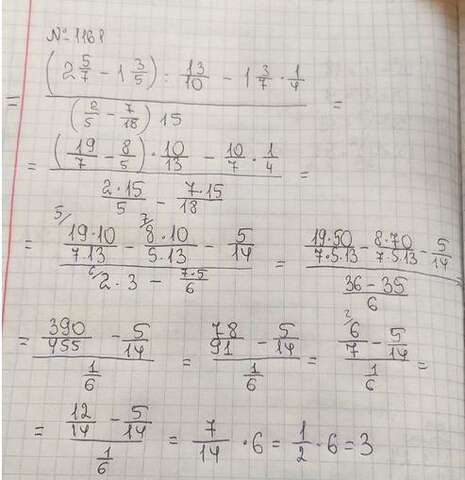 № 1168
= ((2 5/7 - 1 3/5) : 13/10 - 1 3/7 · 1/4) / ((2/5 - 7/18) 15) =
= ((19/7 - 8/5) · 10/13 - 10/7 · 1/4) / (2·15/5 - 7·15/18) =
= (5/ 19·10/7·13 - 7/ 8·10/5·13 - 5/14) / (6/ 2·3 - 7·5/6) = (19·50/7·5·13 - 8·70/7·5·13 - 5/14) / (36-35/6)
= (390/455 - 5/14) / (1/6) = (78/91 - 5/14) / (1/6) = (2/ 6/7 - 5/14) / (1/6) =
= (12/14 - 5/14) / (1/6) = 7/14 · 6 = 1/2 · 6 = 3